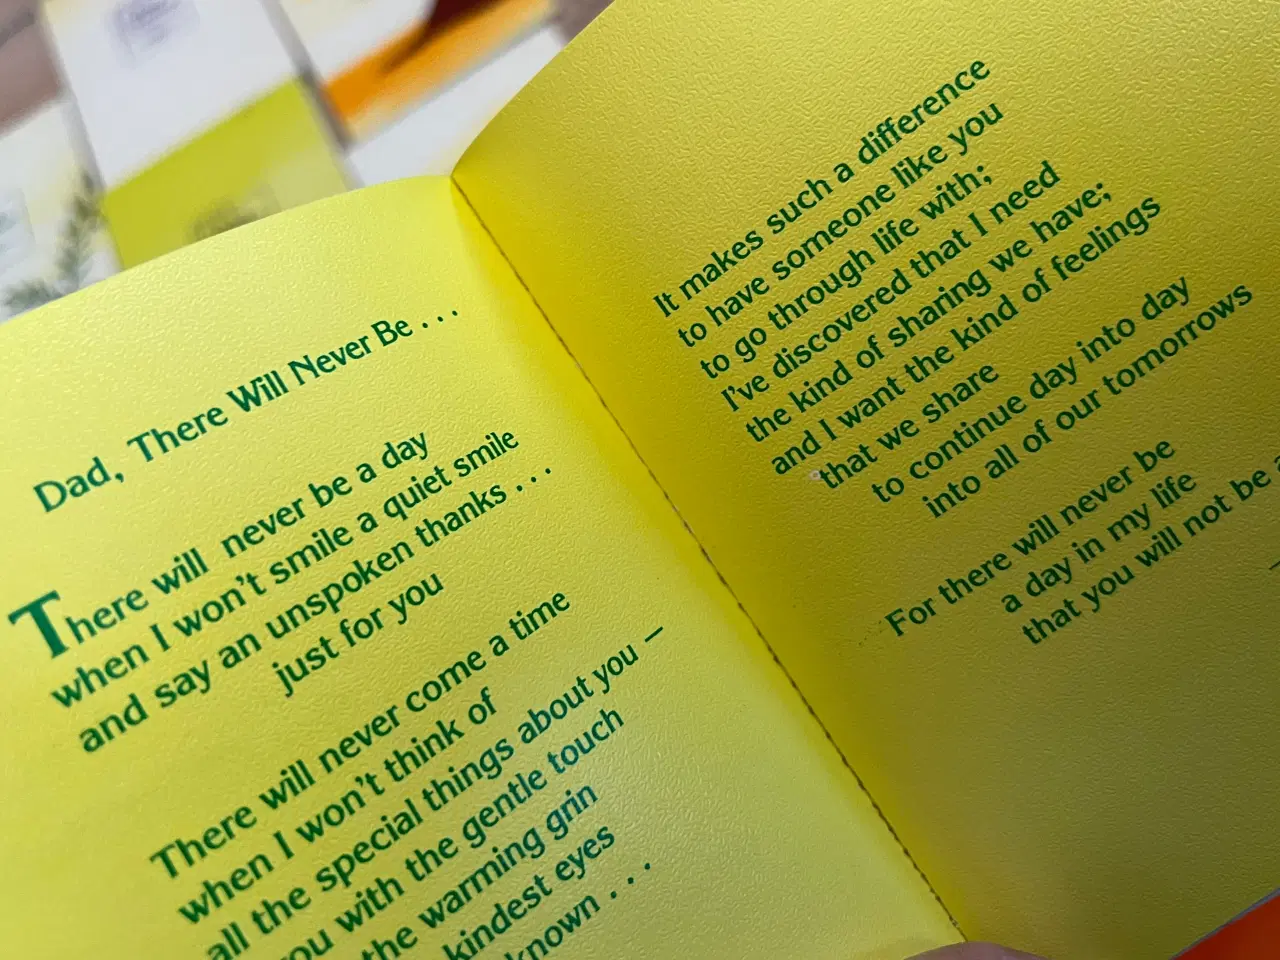 Dad, There Will Never Be . . .
There will never be a day
when I won't smile a quiet smile
and say an unspoken thanks . . .
just for you
There will never come a time
when I won't think of
all the special things about you —
you with the gentle touch
the warming grin
kindest eyes
known . . .
It makes such a difference
to have someone like you
to go through life with;
I've discovered that I need
the kind of sharing we have;
and I want the kind of feelings
that we share
to continue day into day
into all of our tomorrows
For there will never be
a day in my life
that you will not be a